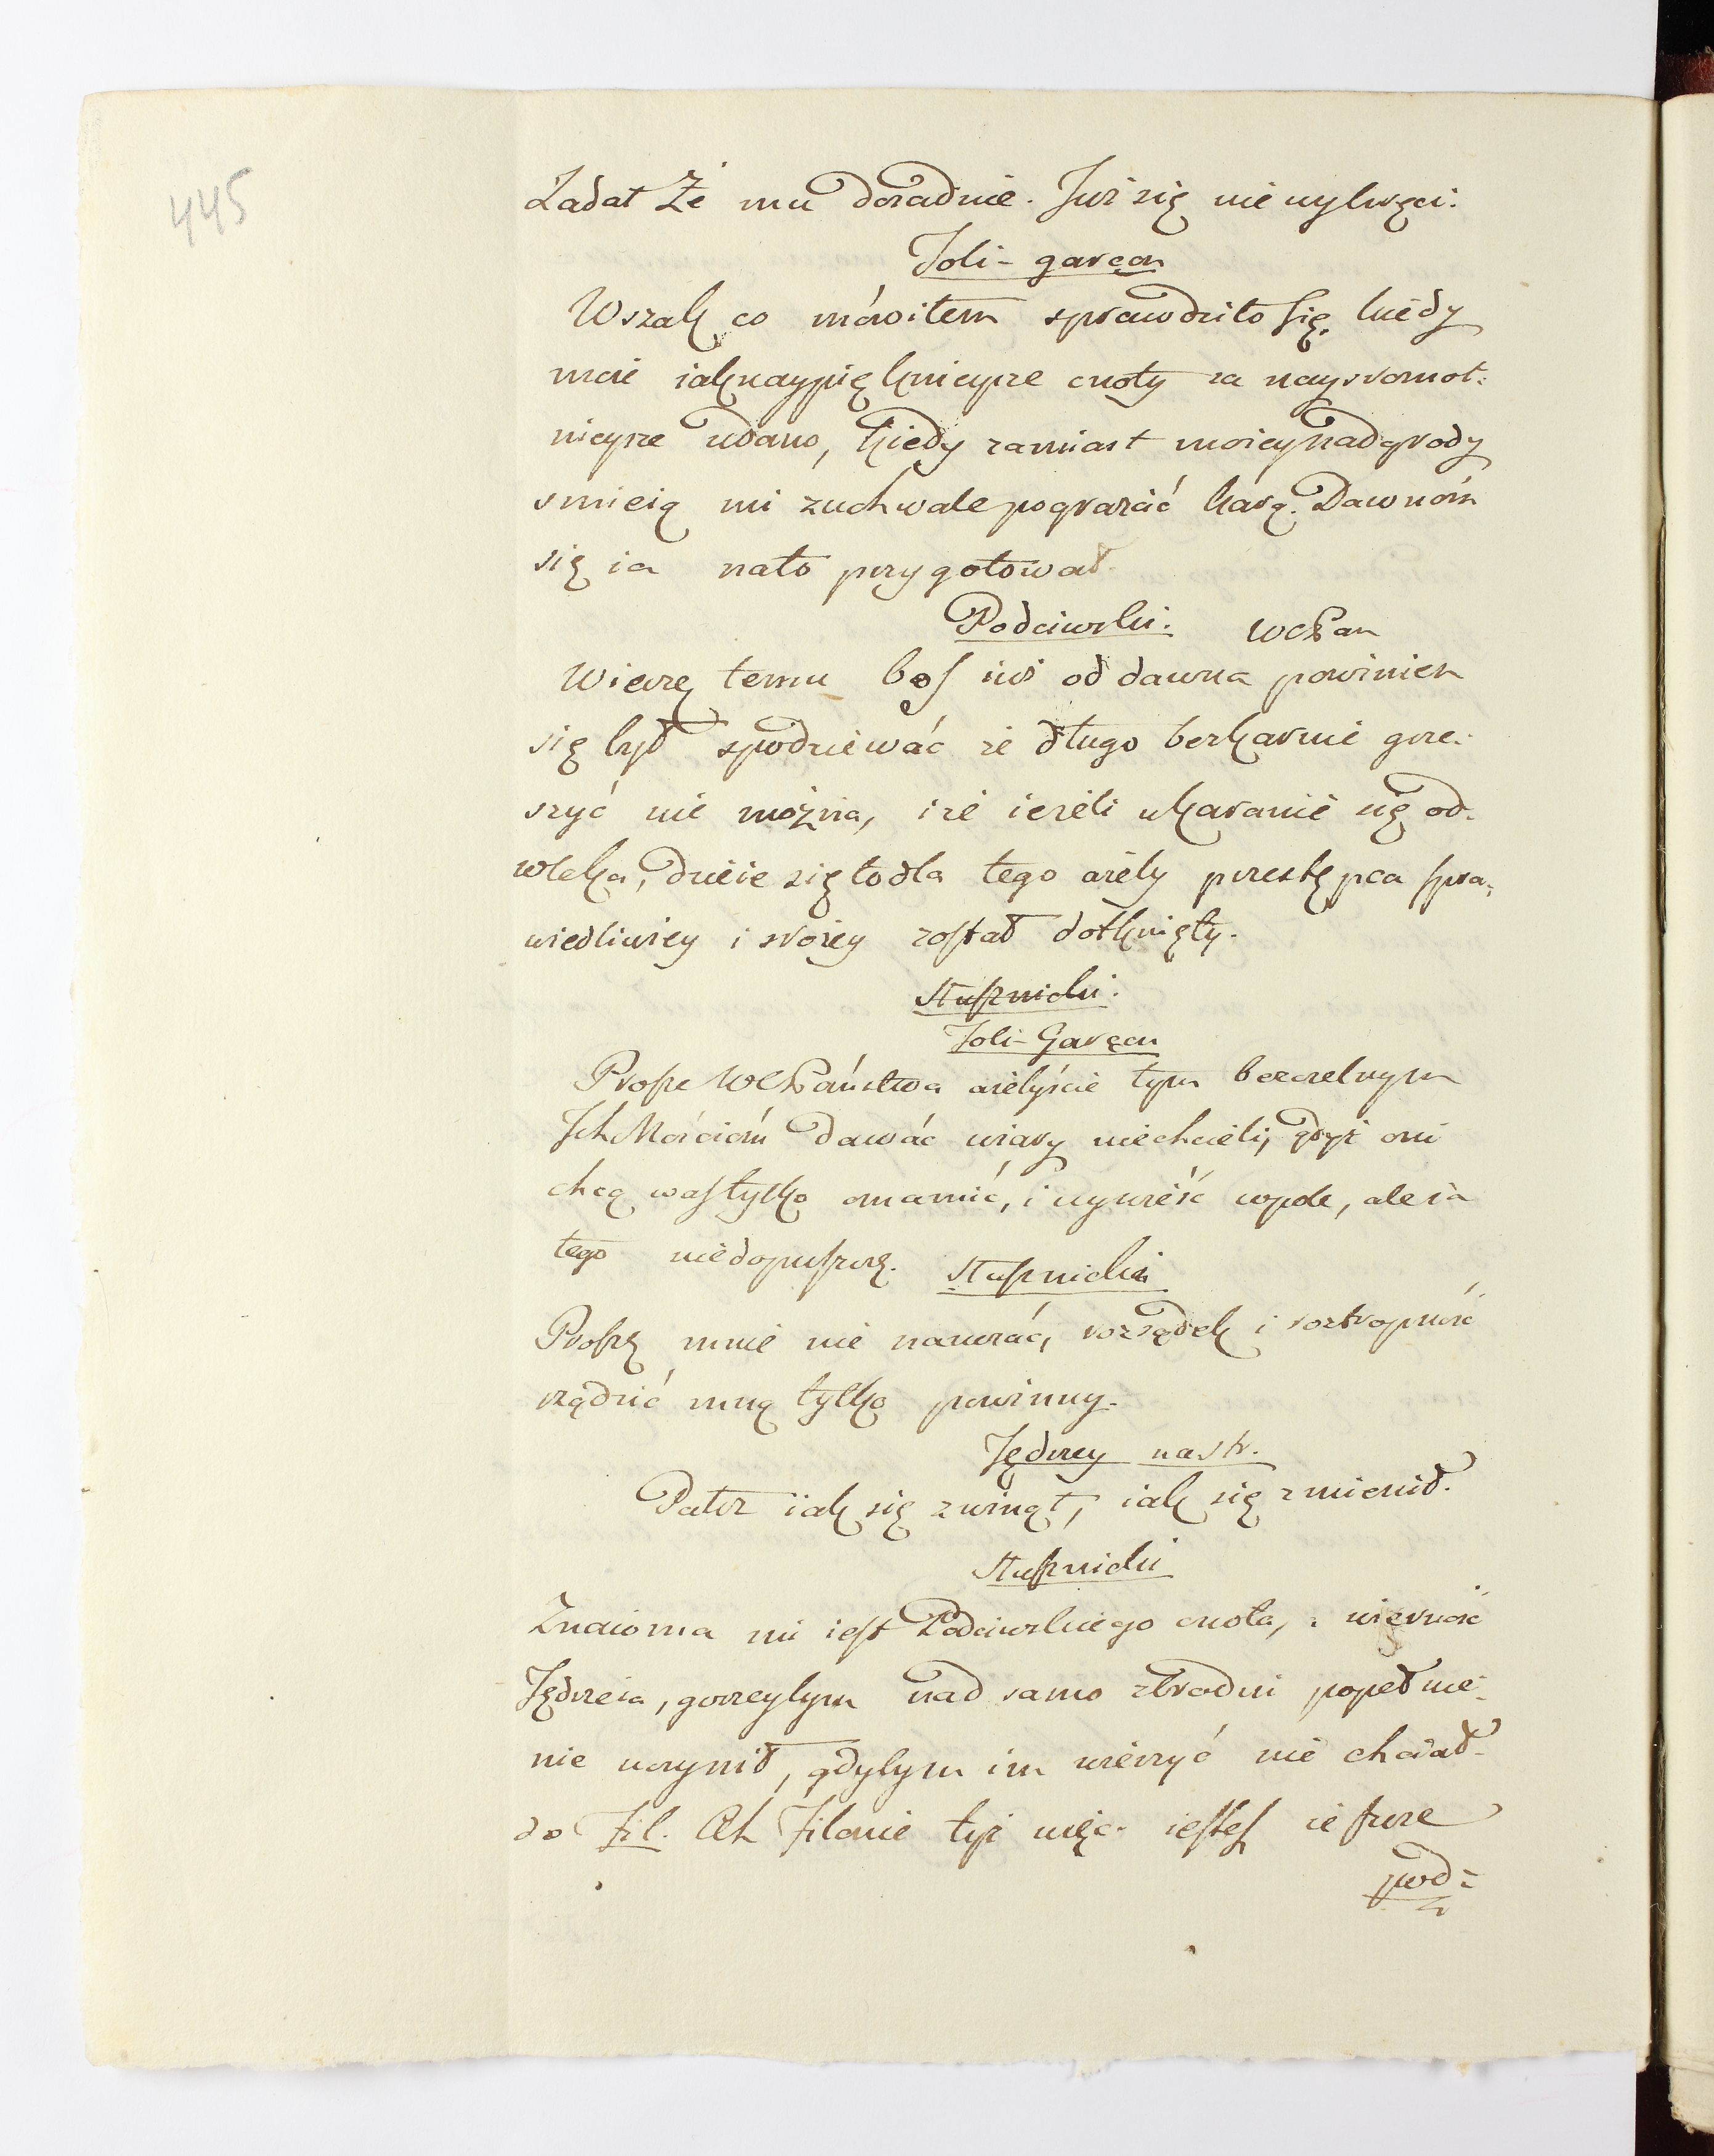 445
Zadał Że mu doradnie. Juź się nie wykręci:
Joli-garçon
Wszak co mówiłem sprawdziło się, kiedy
moie iaknaypięknieysze cnoty za naysromot:
nieysze udano, kiedy zamiast moiey nadgrody
smieią mi zuchwale pograzać karą. Dawnóm
się ia nato przygotował.
Podciwski. WCPan
Wierzę temu boś iuż od dawna powinien
się był spodziewać że długo bezkarnie grze:
szyć nie można, i że ieżeli ukaranie się od-
wleka, dzieie się to dla tego ażeby przestępca spra-
wiedliwiey i srożey został dotknięty.
Stusznicki.
Joli-Garçon
Proszę WCPaństwa ażebyście tym bezczelnym
Ich Mościóm dawać wiary niechcieli, gdyż oni
chcą was tylko omamić, i wywieść wpole, ale ia
tego niedopuszczę. Stusznicki
Proszę mnie nie nauczać, rozsądek i roztropność
rządzić mną tylko powinny.
Jędrzey na str.
Patrz iak się zwinął, iak się zmienił.
Stusznicki
Znaioma mi iest Podciwskiego cnota, i wierność
Jędrzeia, gorzeybym nad samo zbrodni popełnie-
nie uczynił, gdybym im wierzyć nie chciał.
do Fil. Ah Filonie tyż więc iesteś ieszcze
pod=